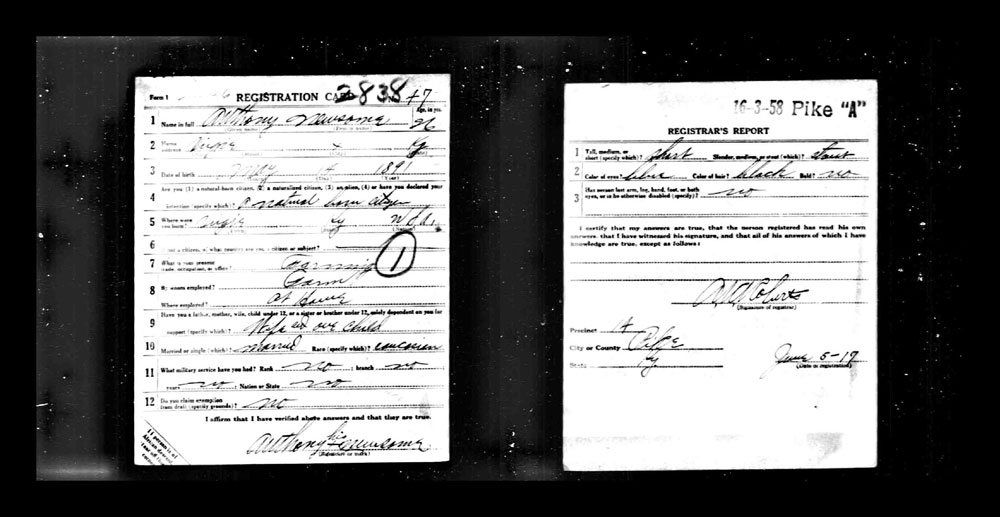 Form 1 REGISTRATION CARD 2838 17
1 Name in full Anthony Newsome Age, in yrs.
(Given name) (Family name) 26
2 Home address Ky
3 Date of birth 1891
(Year)
Are you (1) a natural-born citizen, (2) a naturalized citizen, (3) an alien, (4) or have you declared your
4 intention (specify which)? a natural born citizen
5 Where were you born? Ky
6 If not a citizen, of what country are you a citizen or subject?
7 What is your present trade, occupation, or office? Farming 1
8 By whom employed? Farm
Where employed? at home
9 Have you a father, mother, wife, child under 12, or a sister or brother under 12, solely dependent on you for
support (specify which)? Wife one child
10 Married or single (which)? married Race (specify which)? caucasian
11 What military service have you had? Rank no ; branch no ;
years no ; Nation or State no
12 Do you claim exemption from draft (specify grounds)? no
I affirm that I have verified above answers and that they are true.
Anthony his Newsome
(Signature or mark)
If person is of
African descent,
tear off
corner
16-3-58 Pike "A"
REGISTRAR'S REPORT
1 Tall, medium, or short (specify which)? short Slender, medium, or stout (which)? stout
2 Color of eyes? blue Color of hair? black Bald? no
3 Has person lost arm, leg, hand, foot, or both eyes, or is he otherwise disabled (specify)? no
I certify that my answers are true, that the person registered has read his own
answers, that I have witnessed his signature, and that all of his answers of which I have
knowledge are true, except as follows:
Roberts
(Signature of registrar)
Precinct 14
City or County Pike
State Ky
June 5-17
(Date of registration)